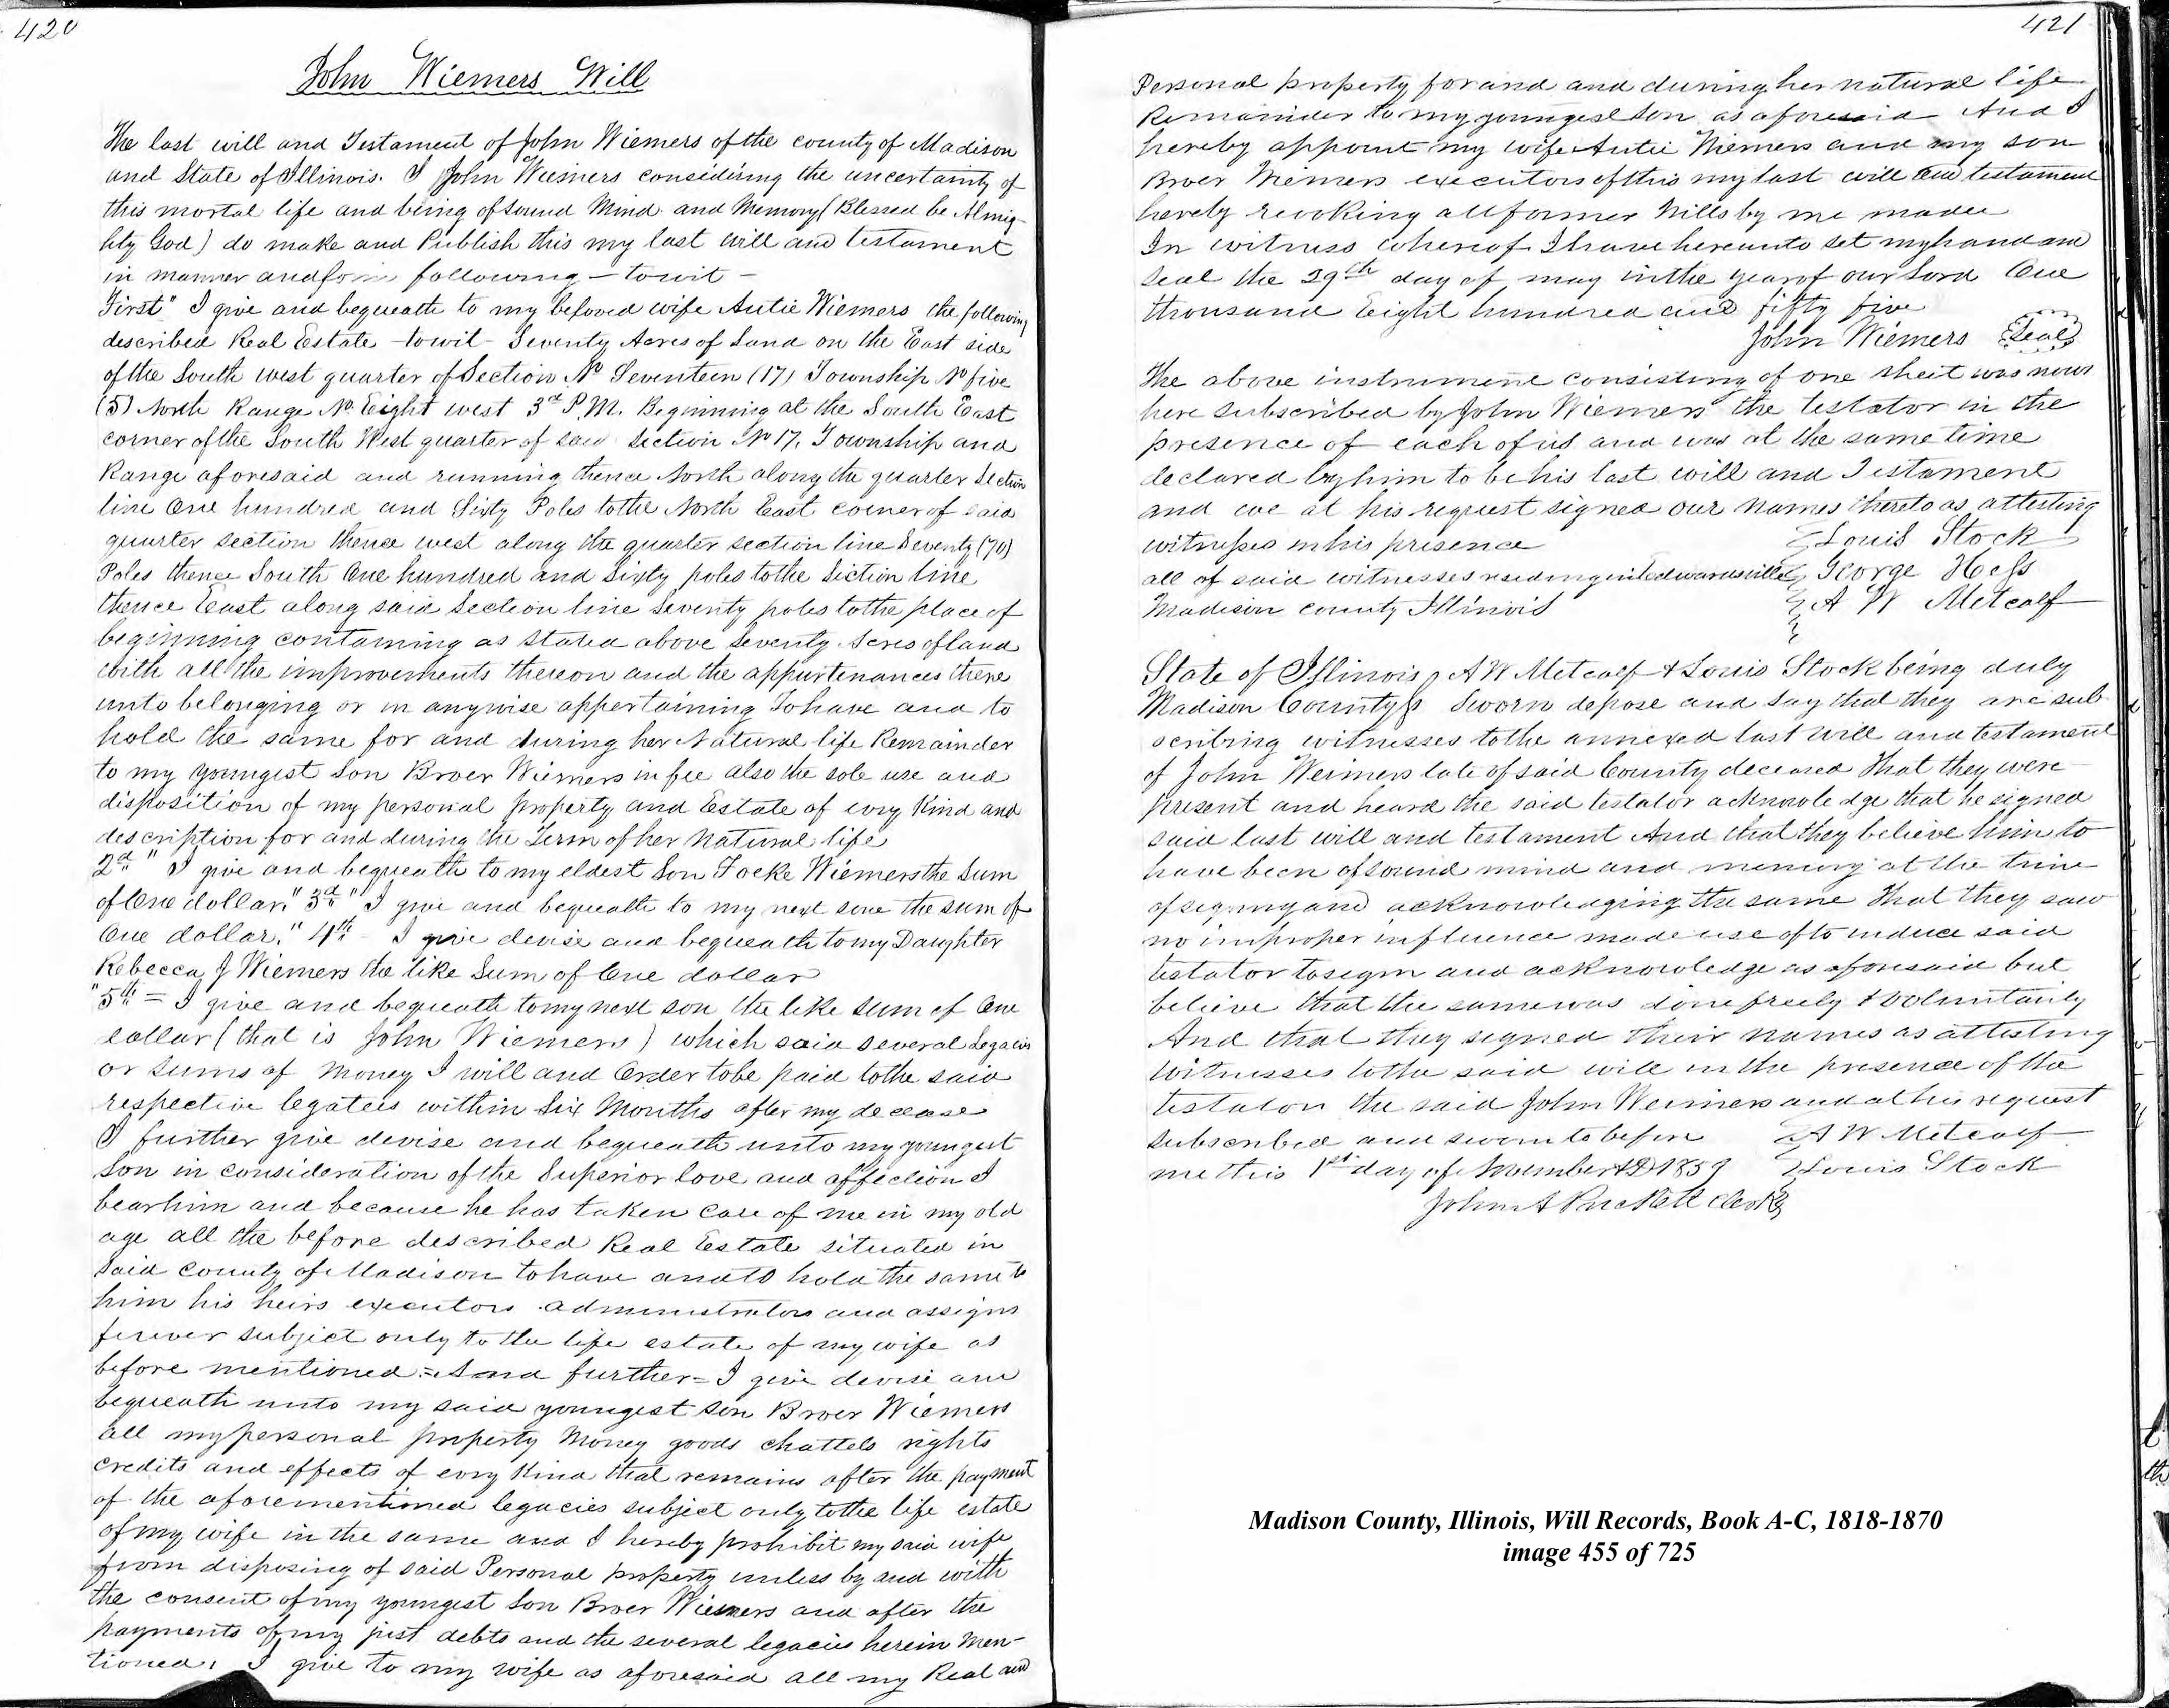 420
John Wiemers Will
The last will and Testament of John Wiemers of the county of Madison
and State of Illinois. I John Wiemers considering the uncertainty of
this mortal life and being of sound Mind and Memory (Blessed be Almig-
hty God) do make and Publish this my last will and testament
in manner and form following - towit -
First" I give and bequeath to my beloved wife Antie Wiemers the following
described Real Estate - towit - Seventy Acres of Land on the East side
of the South west quarter of Section No Seventeen (17) Township No five
(5) North Range No. Eight west 3d P.M. Beginning at the South East
corner of the South West quarter of said section No 17. Township and
Range aforesaid and running thence North along the quarter Section
line One hundred and Sixty Poles to the North East corner of said
quarter section thence west along the quarter section line Seventy (70)
Poles thence South One hundred and Sixty poles to the Section line
thence East along said Section line Seventy poles to the place of
beginning containing as stated above Seventy Acres of land
with all the improvements thereon and the appurtenances there
unto belonging or in anywise appertaining To have and to
hold the same for and during her Natural life Remainder
to my youngest Son Broer Wiemers in fee also the sole use and
disposition of my personal property and Estate of evry Kind and
description for and during the Term of her Natural life
2d " I give and bequeath to my eldest Son Focke Wiemers the Sum
of One dollar." 3d " I give and bequeath to my next sone the sum of
One dollar." 4th - I give devise and bequeath to my Daughter
Rebecca J Wiemers the like Sum of One dollar
"5th = I give and bequeath to my next son the like sum of One
dollar (that is John Wiemers) which said several Legacies
or sums of Money I will and Order to be paid to the said
respective legatees within Six Months after my decease
I further give devise and bequeath unto my youngest
Son in consideration of the Superior love and affection I
bear him and because he has taken care of me in my old
age all the before described Real Estate situated in
said County of Madison to have and to hold the same to
him his heirs executors administrators and assigns
forever subject only to the life estate of my wife as
before mentioned = And further = I give devise and
bequeath unto my said youngest son Broer Wiemers
all my personal property Money goods chattels rights
credits and effects of evry Kind that remains after the payment
of the aforementioned legacies subject only to the life estate
of my wife in the same and I hereby prohibit my said wife
from disposing of said Personal property unless by and with
the consent of my youngest Son Broer Wiemers and after the
payments of my just debts and the several legacies herein men-
tioned, I give to my wife as aforesaid all my Real and
421
Personal property for and and during her natural life
Remainder to my youngest son as aforesaid And I
hereby appoint my wife Antie Wiemers and my son
Broer Wiemers executors of this my last will and testament
hereby revoking all former Wills by me made
In witness whereof I have hereunto set my hand and
seal the 29th day of may in the year of our Lord One
thousand Eight hundred and fifty five
John Wiemers Seal
The above instrument consisting of one sheet was now
here subscribed by John Wiemers the testator in the
presence of each of us and was at the same time
declared by him to be his last will and Testament
and we at his request signed our names thereto as attesting
witnesses in his presence Louis Stock
all of said witnesses residing in Edwardsville George Hess
Madison County Illinois A W Metcalf
State of Illinois A W Metcalf & Louis Stock being duly
Madison County Sworn depose and say that they are sub-
scribing witnesses to the annexed last will and testament
of John Weimers late of said County deceased That they were
present and heard the said testator acknowledge that he signed
said last will and testament And that they believe him to
have been of sound mind and memory at the time
of signing and acknowledging the same That they saw
no improper influence made use of to induce said
testator to sign and acknowledge as aforesaid but
believe that the same was done freely & voluntarily
And that they signed their names as attesting
witnesses to the said will in the presence of the
testator the said John Weimers and at his request
subscribed and sworn to before A W Metcalf
me this 1st day of November AD 1859 Louis Stock
John A Prickett Clerk
Madison County, Illinois, Will Records, Book A-C, 1818-1870
image 455 of 725